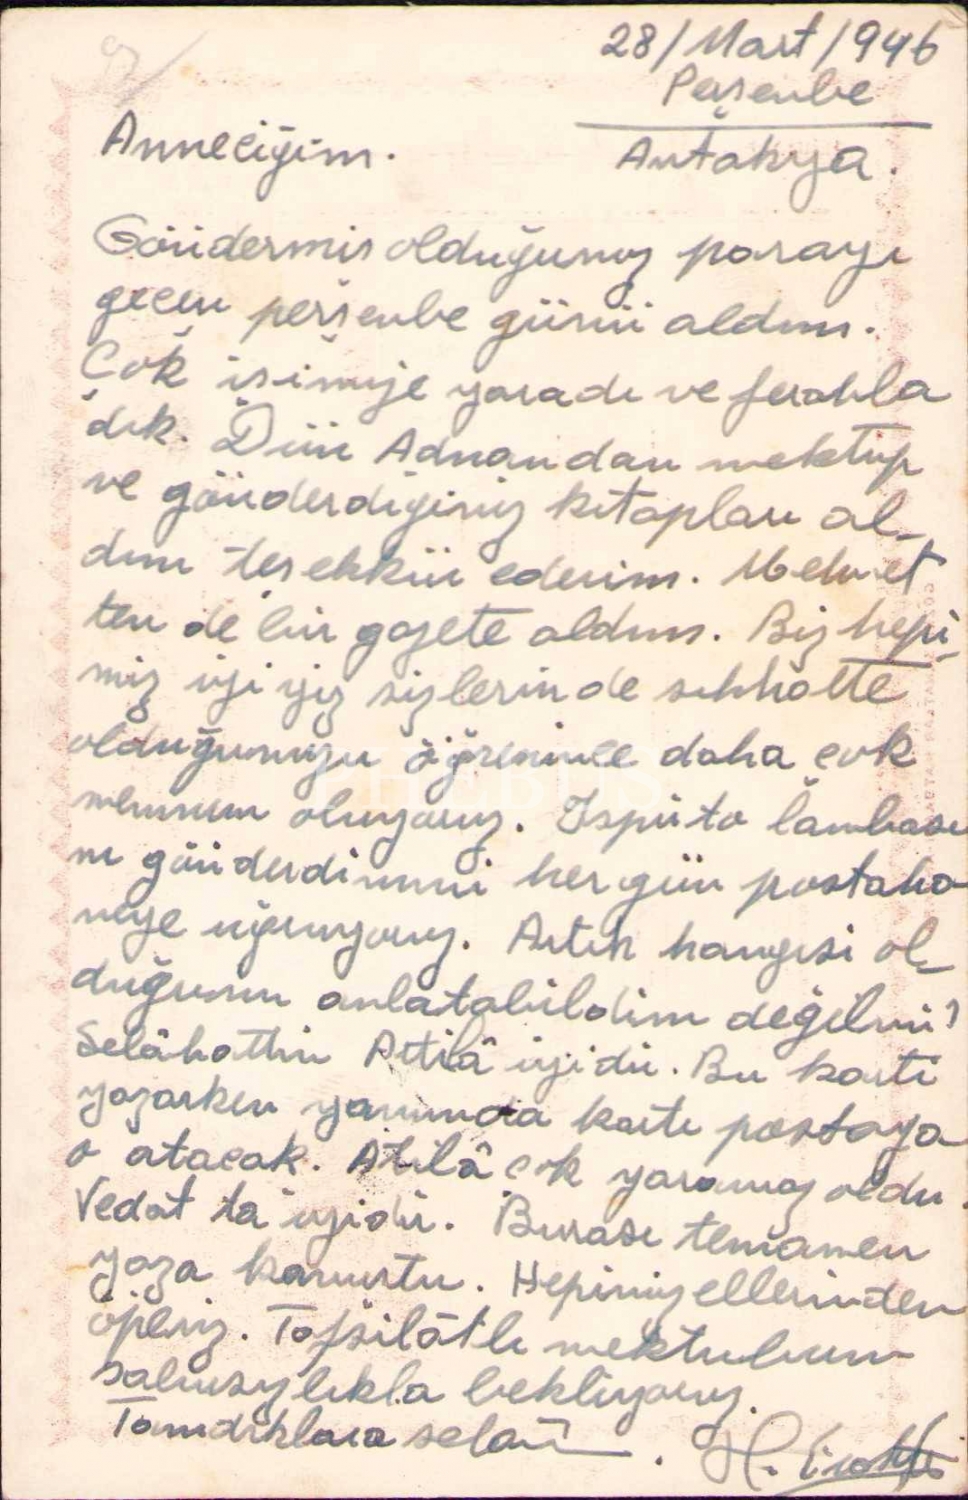 28/Mart/946
Perşenbe
Anneciğim.
Antakya.
Göndermiş olduğunuz parayı
geçen perşenbe günü aldım.
Çok işimize yaradı ve ferahla
dık. Dün Adnandan mektup
ve gönderdiğiniz kitapları al-
dım teşekkür ederim. Mehmet
ten de bir gazete aldım. Biz hepi-
miz iyi yiz sizlerin de sıhhatte
olduğunuzu öğrenince daha çok
memnun oluyoruz. İspirto lambası
nı gönderdinmi her gün postaha
neye uğruyoruz. Artık hangisi ol-
duğunu anlatabildim değilmi?
Selâhattin Atilâ iyidir. Bu kartı
yazarken yanımda kartı postaya
o atacak. Atilâ çok yaramaz oldu.
Vedat ta iyidir. Burası temamen
yaza kavuştu. Hepiniz ellerinden
öperiz. Tafsilâtlı mektubunu
sabırsızlıkla bekliyoruz.
Tanıdıklara selâm. H.
PHEBUS